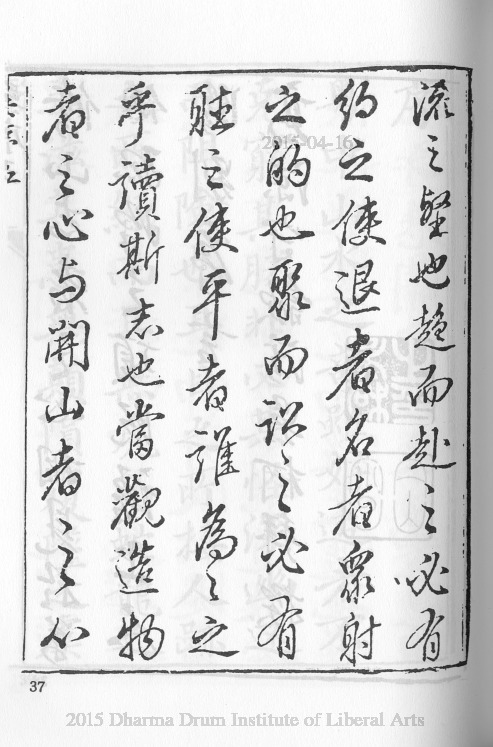 之壑也趨而赴之必有
約之使退者名者衆射
之的也聚而訟之必有
聽之使平者誰為〻之
乎讀斯志也當觀造物
者之心与開山者之心
37
2015-04-16
2015 Dharma Drum Institute of Liberal Arts